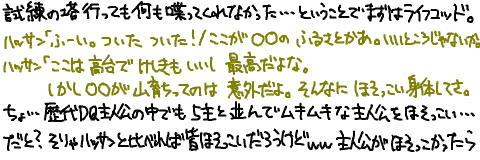 試練の塔行っても何も喋ってくれなかった…ということでまずはライフコッド。
ハッサン「ふーい。ついた ついた！/ここが○○の ふるさとかあ。いいところじゃないか。
ハッサン「ここは高台で けしきも いいし 最高だよな。
しかし ○○が山育ちってのは 意外だよ。そんなに ほそっこい身体してさ。
ちょ…歴代DQ主人公の中でも5主と並んでムキムキな主人公をほそっこい…
だと？そりゃハッサンと比べれば皆ほそっこいだろうけどww 主人公がほそっこかったら